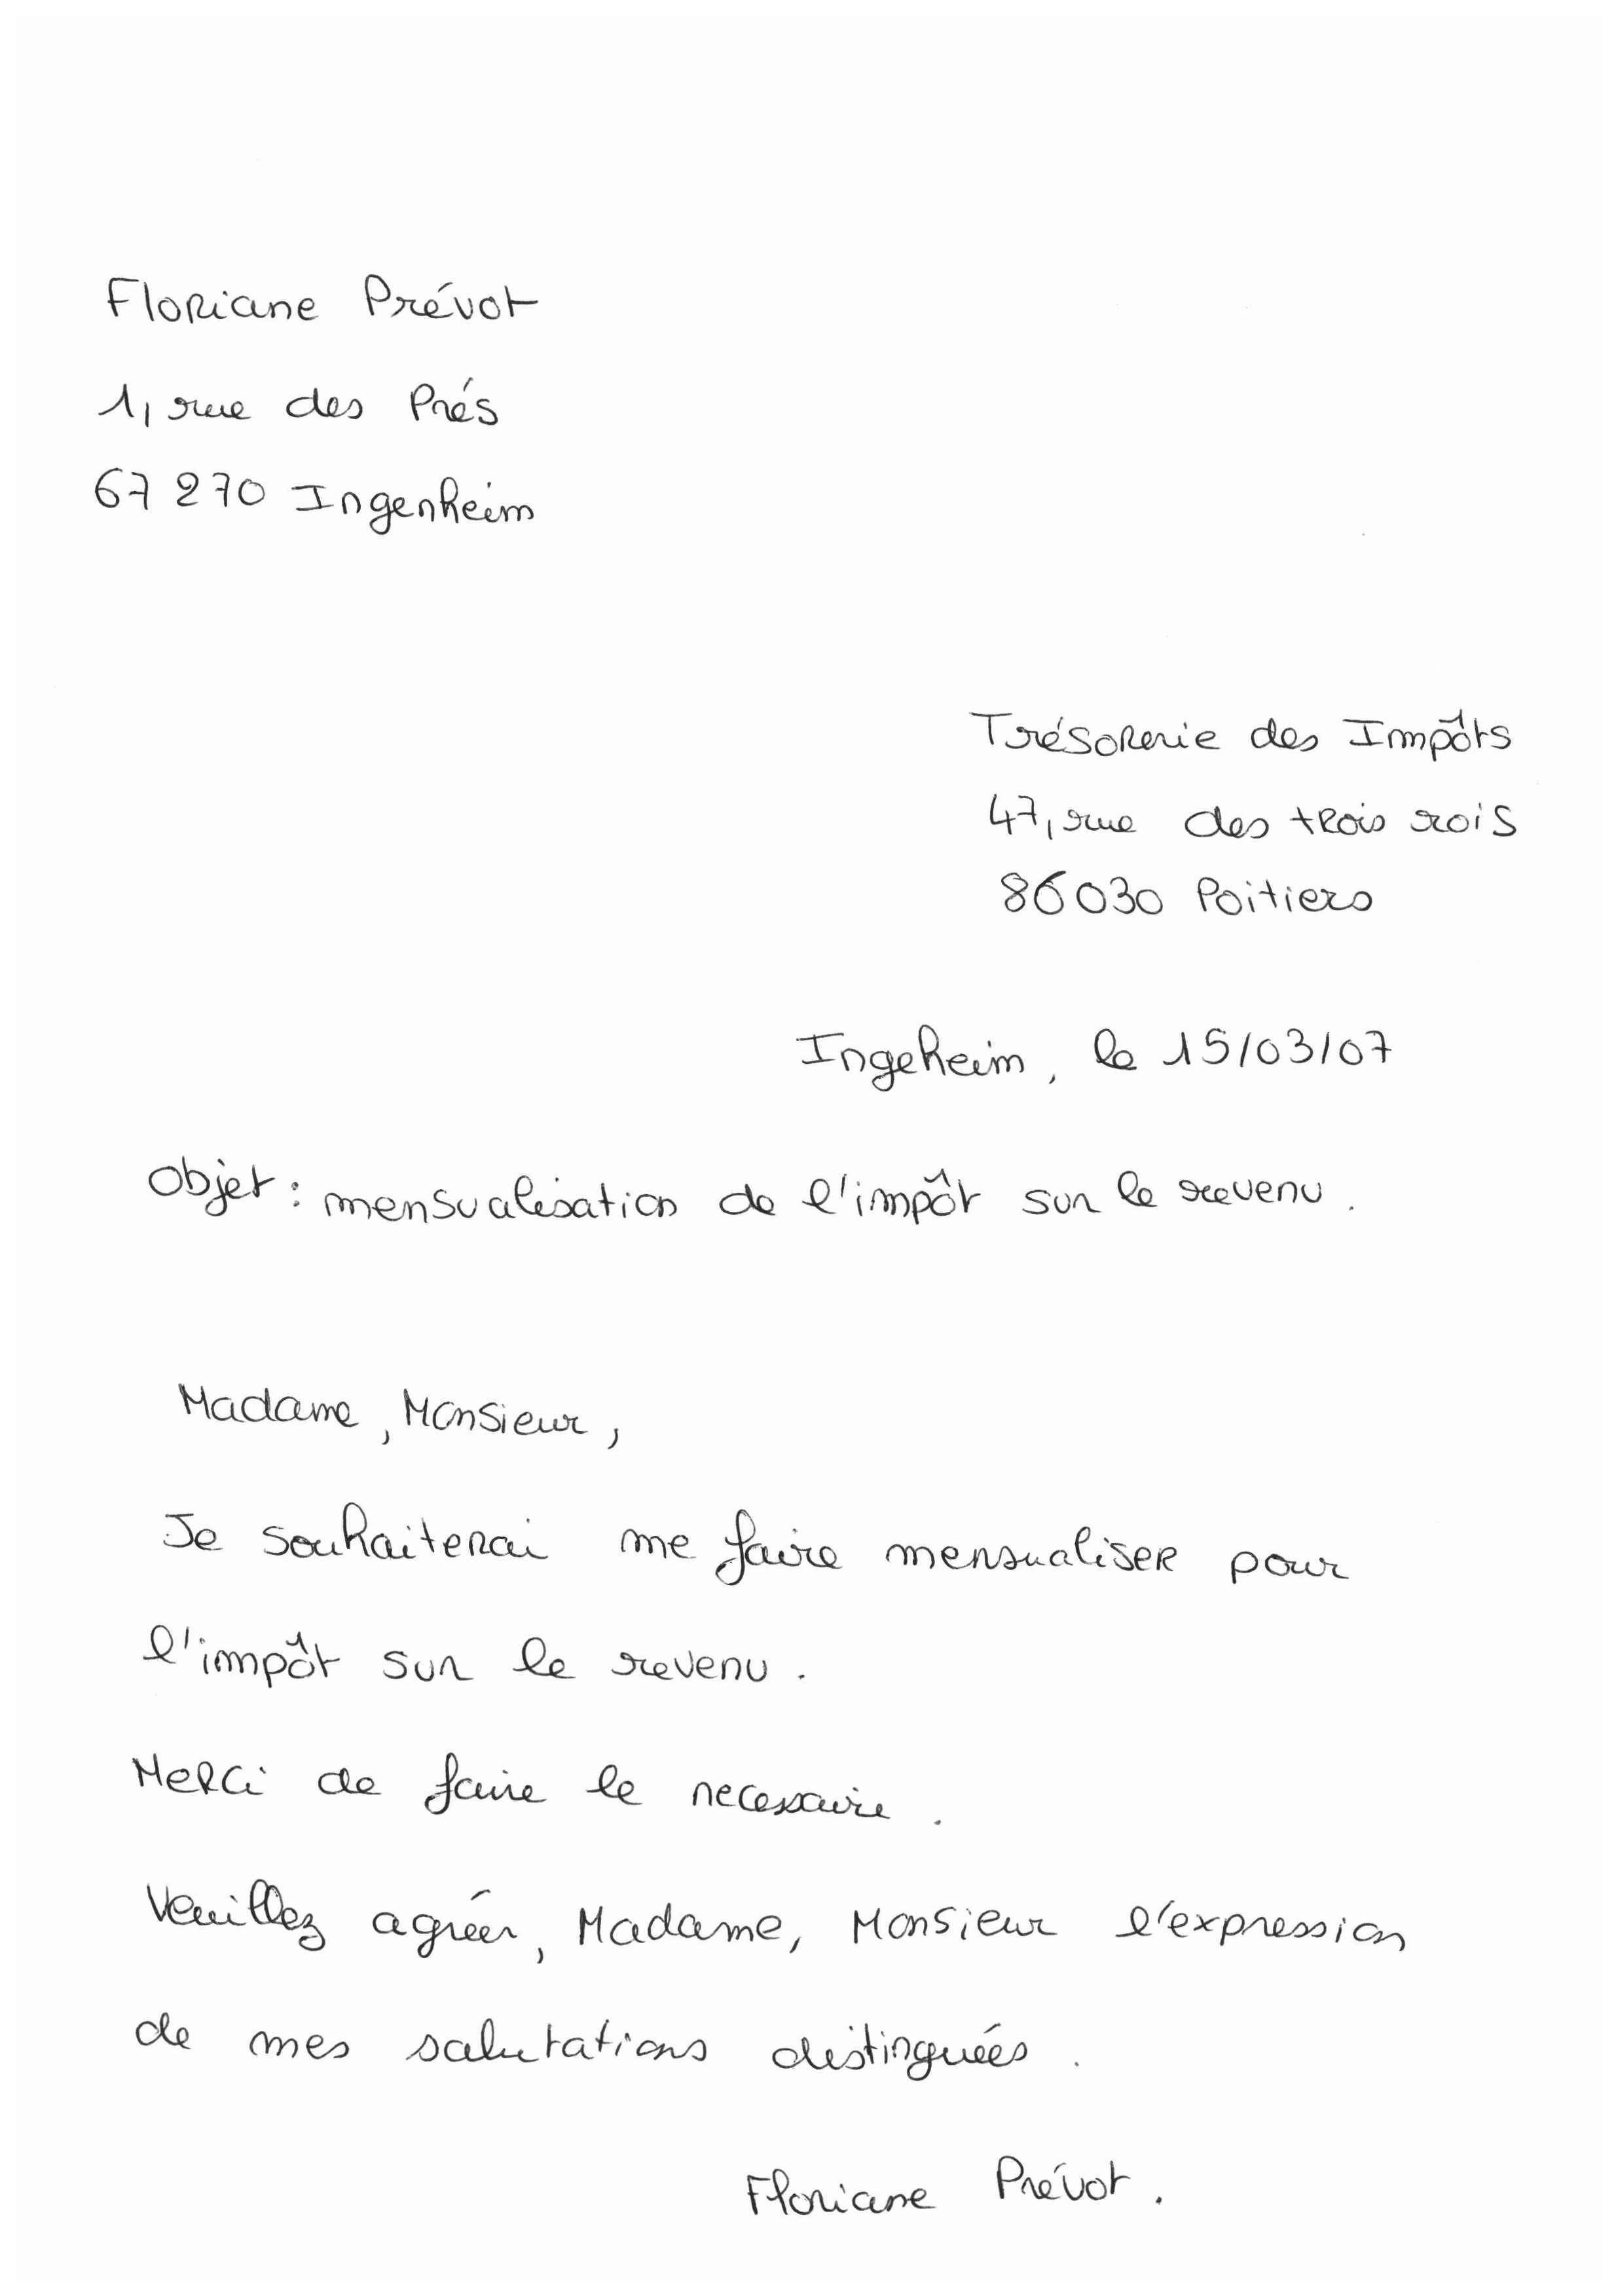 Floriane Prévot
1, rue des Prés
67 270 Ingenheim
Trésorerie des Impôts
47, rue des trois rois
86030 Poitiers
Ingeheim, le 15/03/07
Objet : mensualisation de l'impôt sur le revenu.
Madame, Monsieur,
Je souhaiterai me faire mensualiser pour
l'impôt sur le revenu.
Merci de faire le necessaire.
Veuillez agréer, Madame, Monsieur l'expression
de mes salutations distinguées.
Floriane Prévot.